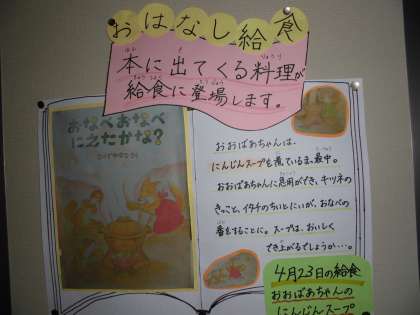 おはなし給食
本に出てくる料理が
給食に登場します。
おなべおなべ
にえたかな?
おおばあちゃんは、
にんじんスープを煮ているまっ最中。
おおばあちゃんに急用ができ、キツネの
きっこと、イタチのちいとにいが、おなべの
番をすることに。スープは、おいしく
でき上がるでしょうか…。
4月23日の給食
おおばあちゃんの
にんじんスープ